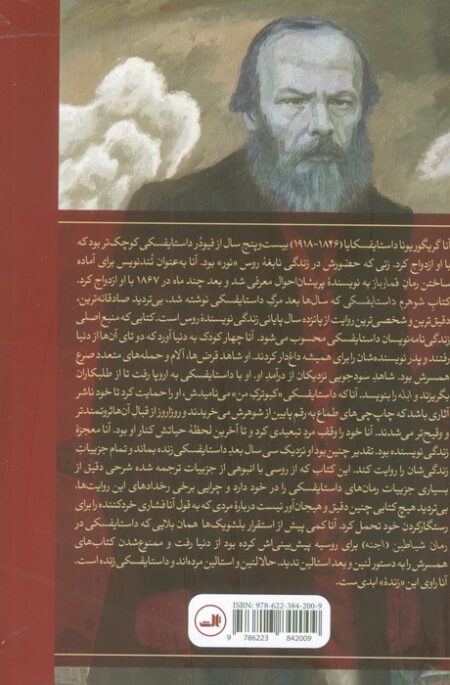 آنا گریگوریونا داستایفسکایا (۱۸۴۶-۱۹۱۸) بیست‌وپنج سال از فیودُر داستایفسکی کوچک‌تر بود که
با او ازدواج کرد. زنی که حضورش در زندگی نابغهٔ روس «نور» بود. آنا به‌عنوان تُندنویس برای آماده
ساختن رمان قمارباز به نویسندهٔ پریشان‌احوال معرفی شد و بعد چند ماه در ۱۸۶۷ با او ازدواج کرد.
کتاب شوهرم داستایفسکی که سال‌ها بعد مرگ داستایفسکی نوشته شد، بی‌تردید صادقانه‌ترین،
دقیق‌ترین و شخصی‌ترین روایت از پانزده سال پایانی زندگی نویسندهٔ روس است. کتابی که منبع اصلی
زندگی‌نامه‌نویسان داستایفسکی محسوب می‌شود. آنا چهار کودک به دنیا آورد که دو تای آن‌ها از دنیا
رفتند و پدر نویسنده‌شان را برای همیشه داغ‌دار کردند. او شاهد قرض‌ها، آلام و حمله‌های متعدد صرع
همسرش بود. شاهدِ سودجویی نزدیکان از درآمد او. او با داستایفسکی به اروپا رفت تا از طلبکاران
بگریزند و ابله را بنویسد. آنا که داستایفسکی «کبوترک من» می‌نامیدش، او را حمایت کرد تا خود ناشر
آثاری باشد که چاپ‌چی‌های طماع به رقم پایین از شوهرش می‌خریدند و روزبه‌روز از قِبال آن‌ها ثروتمندتر
و وقیح‌تر می‌شدند. آنا خود را وقف مرد تبعیدی کرد و تا آخرین لحظهٔ حیاتش کنار او بود. آنا معجزهٔ
زندگی نویسنده بود. تقدیر چنین بود او نزدیک سی سال بعدِ داستایفسکی زنده بماند و تمام جزییات
زندگی‌شان را روایت کند. این کتاب که از روسی با انبوهی از جزییات ترجمه شده شرحی دقیق از
بسیاری جزییات رمان‌های داستایفسکی را در خود دارد و چرایی برخی رخدادهای این روایت‌ها.
بی‌تردید هیچ کتابی چنین دقیق و هیجان‌آور نیست دربارهٔ مردی که به قول آنا فشاری خردکننده را برای
رستگار کردن خود تحمل کرد. آنا کمی پیش از استقرار بلشویک‌ها همان بلایی که داستایفسکی در
رمان شیاطین (اجنه) برای روسیه پیش‌بینی‌اش کرده بود از دنیا رفت و ممنوع‌شدن کتاب‌های
همسرش را به دستور لنین و بعد استالین ندید. حالا لنین و استالین مرده‌اند و داستایفسکی زنده است.
آنا راوی این «زندهٔ» ابدی ست.
ISBN: 978-622-384-200-9
9 786223 842009
ثالث